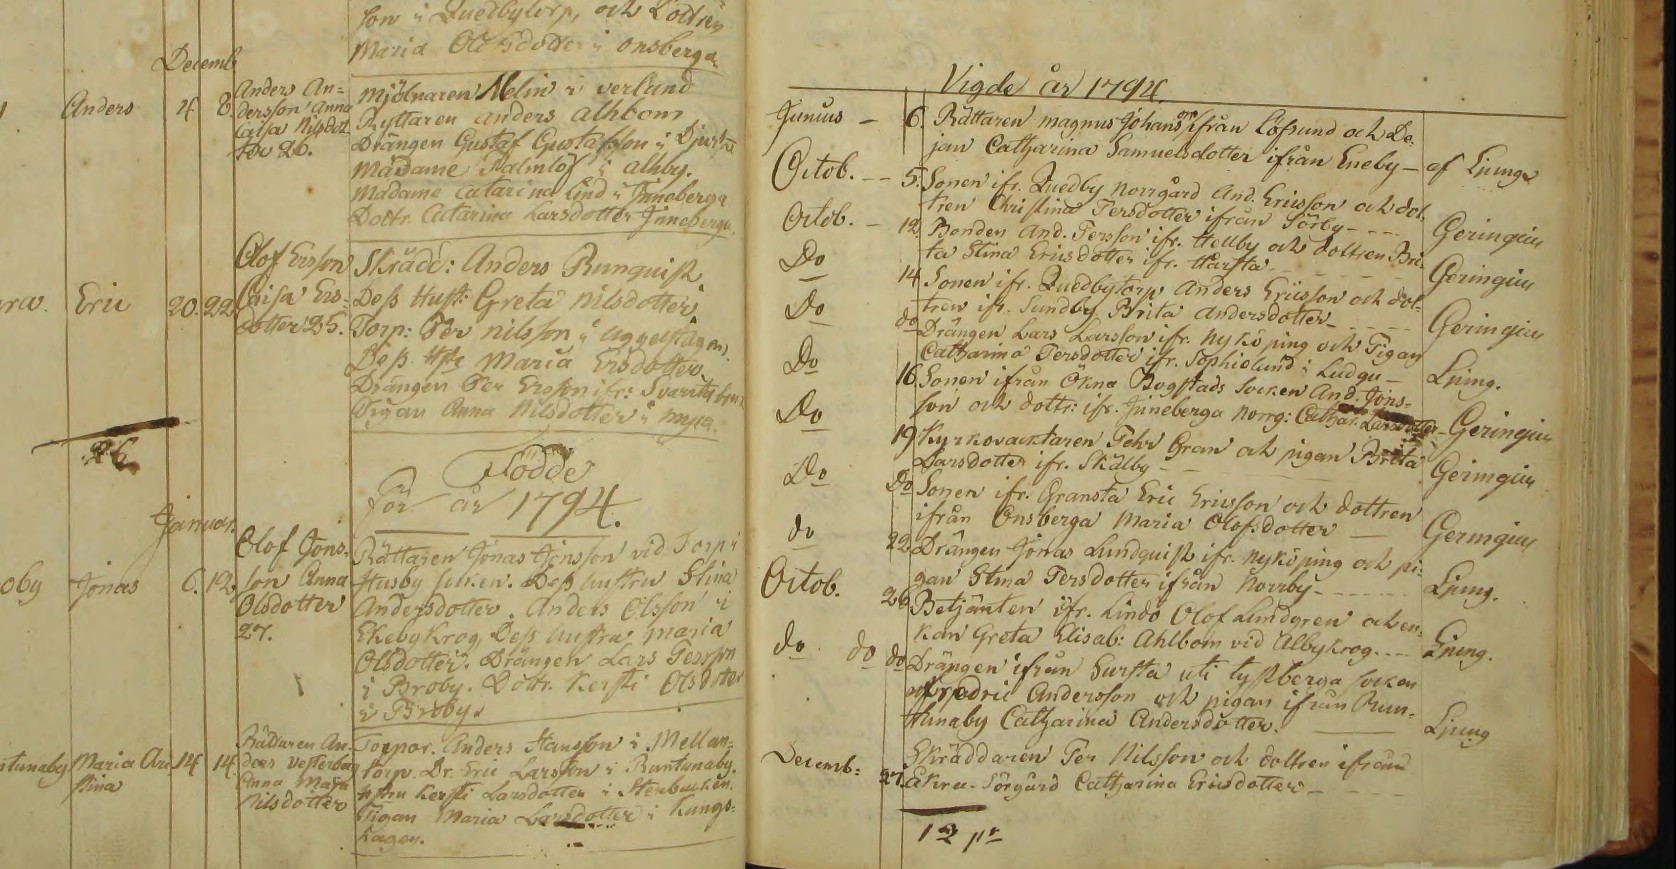 son i Quedbytorp, och
Maria Olofsdotter i Onsberga
Decemb
Anders 4. 8.
Anders An-
dersson Anna
Cajsa Nilsdot
ter 26.
Mjölnaren Melin i verlund
Ryttaren Anders Alhbom
Drängen Gustaf Gustafsson i
Madame Palmlöf i alhby.
Madame Catarina Lind i Jinneberga
Dottr. Catarina Larsdotter Jinneberga.
Eric 20. 22
Olof Ersson
Cajsa Ers-
dotter 25.
Skrädd: Anders Runquist
Dess Hust: Greta Nilsdotter
Torp: Per Nilsson i
Dess Maria Ersdotter
Drängen Per Ersson ifr:
Pigan Anna Nilsdotter i myra.
26
Födde
för år 1794.
Januar.
oby Jonas 6. 12
Olof Jons-
son Anna
Olsdotter
27.
Rättaren Jonas Jönsson vid Torp i
Husby socken. Dess hustru Stina
Andersdotter. Anders Olsson i
Ekeby Krog Dess hustru Maria
Olsdotter. Drängen Lars Persson
i Broby. Dottr. Kersti Olsdotter
i Broby.
ntunaby Maria Chri 14 14.
stina
Rättaren An-
ders Vesterberg
Anna Maja
Nilsdotter
Torpar. Anders Hansson i Mellan-
torp. Dr. Eric Larsson i Runtunaby.
Hstru Kersti Larsdotter i Stenbacken.
Pigan Maria Larsdotter i Kungs-
hagen.
Vigde år 1794.
Junius — 6. Rättaren Magnus Johansson ifrån Löfsund och De-
jan Catharina Samuelsdotter ifrån Eneby — af Ljung
Octob. — 5. Sonen ifr. Quedby Norrgård And. Ericsson och dot-
tren Christina Persdotter ifrån Sörby — Geringius
Octob. — 12 Bonden And. Persson ifr. Hellby och dottren Bri-
ta Stina Ericsdotter ifr. Harfsta Geringius
Do 14 Sonen ifr. Quedbytorp Anders Ericsson och dot-
tren ifr. Sundby Brita Andersdotter — Geringius
Do do Drängen Lars Larsson ifr. Nyköping och Pigan
Catharina Persdotter ifr. Sophielund i Ludgo — Ljung.
Do 16 Sonen ifrån Ökna Bogstads Socken And. Jöns-
son och dottr: ifr. Jinneberga Norrg: Cathar. Larsdotter — Geringius
Do 19 Kyrkovaktaren Pehr Gran och pigan Brita
Larsdotter ifr. Skälby — Geringius
Do Do Sonen ifr. Gransta Eric Ericsson och dottren
ifrån Onsberga Maria Olofsdotter — Geringius
do 22 Drängen Jonas Lundquist ifr. Nyköping och pi-
gan Stina Persdotter ifrån Norrby — Ljung.
Octob. 26 Betjänten ifr. Lindö Olof Lundgren och en-
kan Greta Elisab: Ahlbom vid Albykrog — Ljung.
do do do Drängen ifrån Sursta uti Tystberga socken
Fredric Andersson och pigan ifrån Run-
tunaby Catharina Andersdotter. — Ljung
Decemb: 27. Skräddaren Per Nilsson och dottren ifrån
Åkra-Sörgård Catharina Ericsdotter —
12 pr